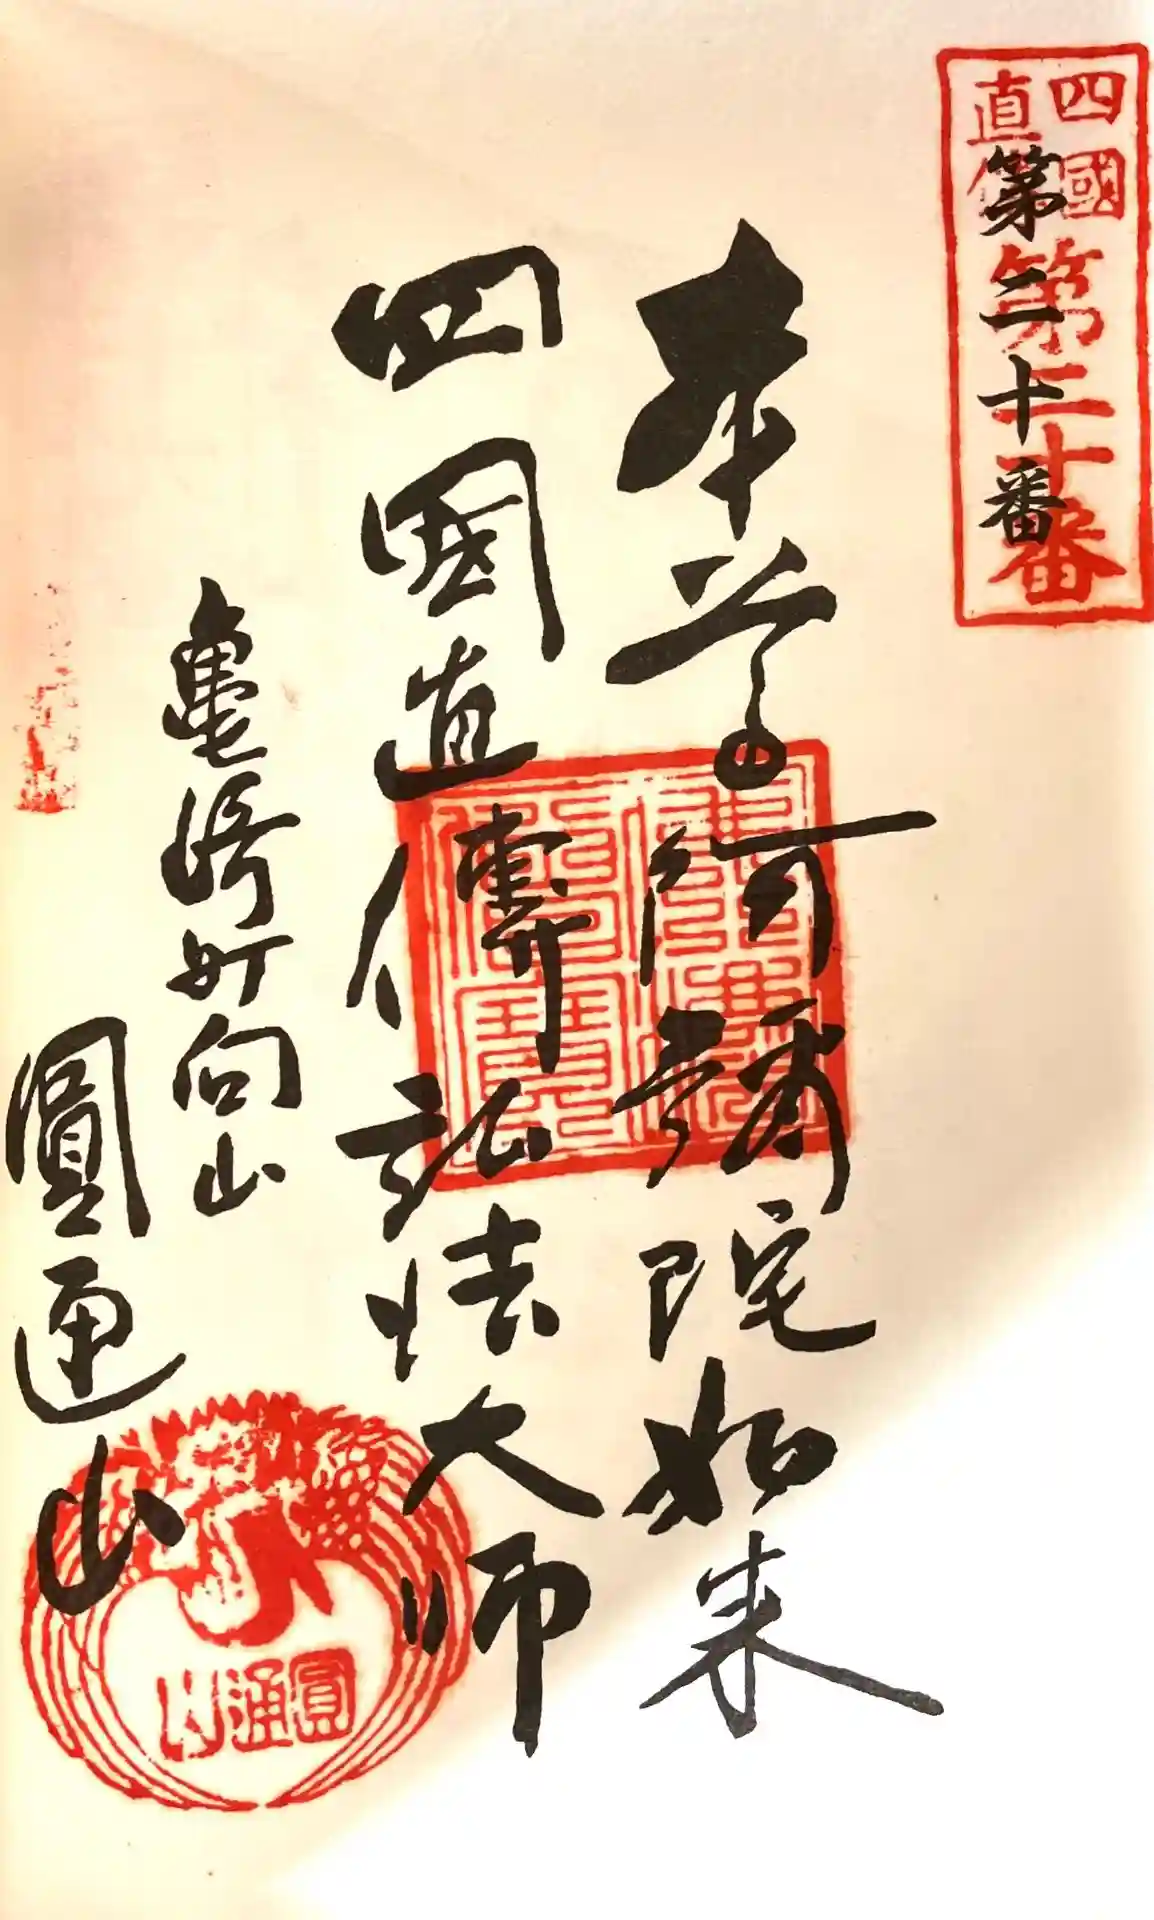 四國
直伝
第二十番
第二十番
本尊阿彌陀如来
四國直傳弘法大師
亀崎町向山
圓通山
圓通山